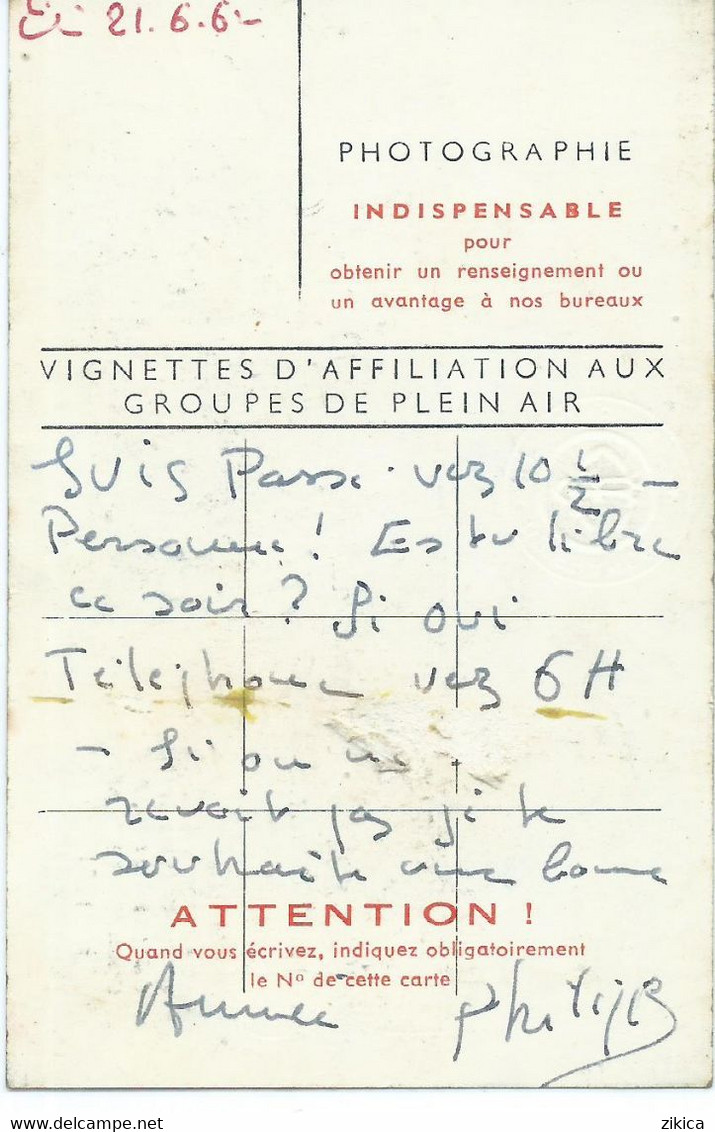 21.6.6
PHOTOGRAPHIE
INDISPENSABLE
pour
obtenir un renseignement ou
un avantage à nos bureaux
VIGNETTES D'AFFILIATION AUX
GROUPES DE PLEIN AIR
SUIS Passé. vers 10 1/2 -
Personne! Es tu libre
ce soir? Si oui
Téléphone vers 6H
- Si on
revoit pas je te
souhaite une bonne
ATTENTION !
Quand vous écrivez, indiquez obligatoirement
le Nº de cette carte
Année Philip
delcampe.net
zikica